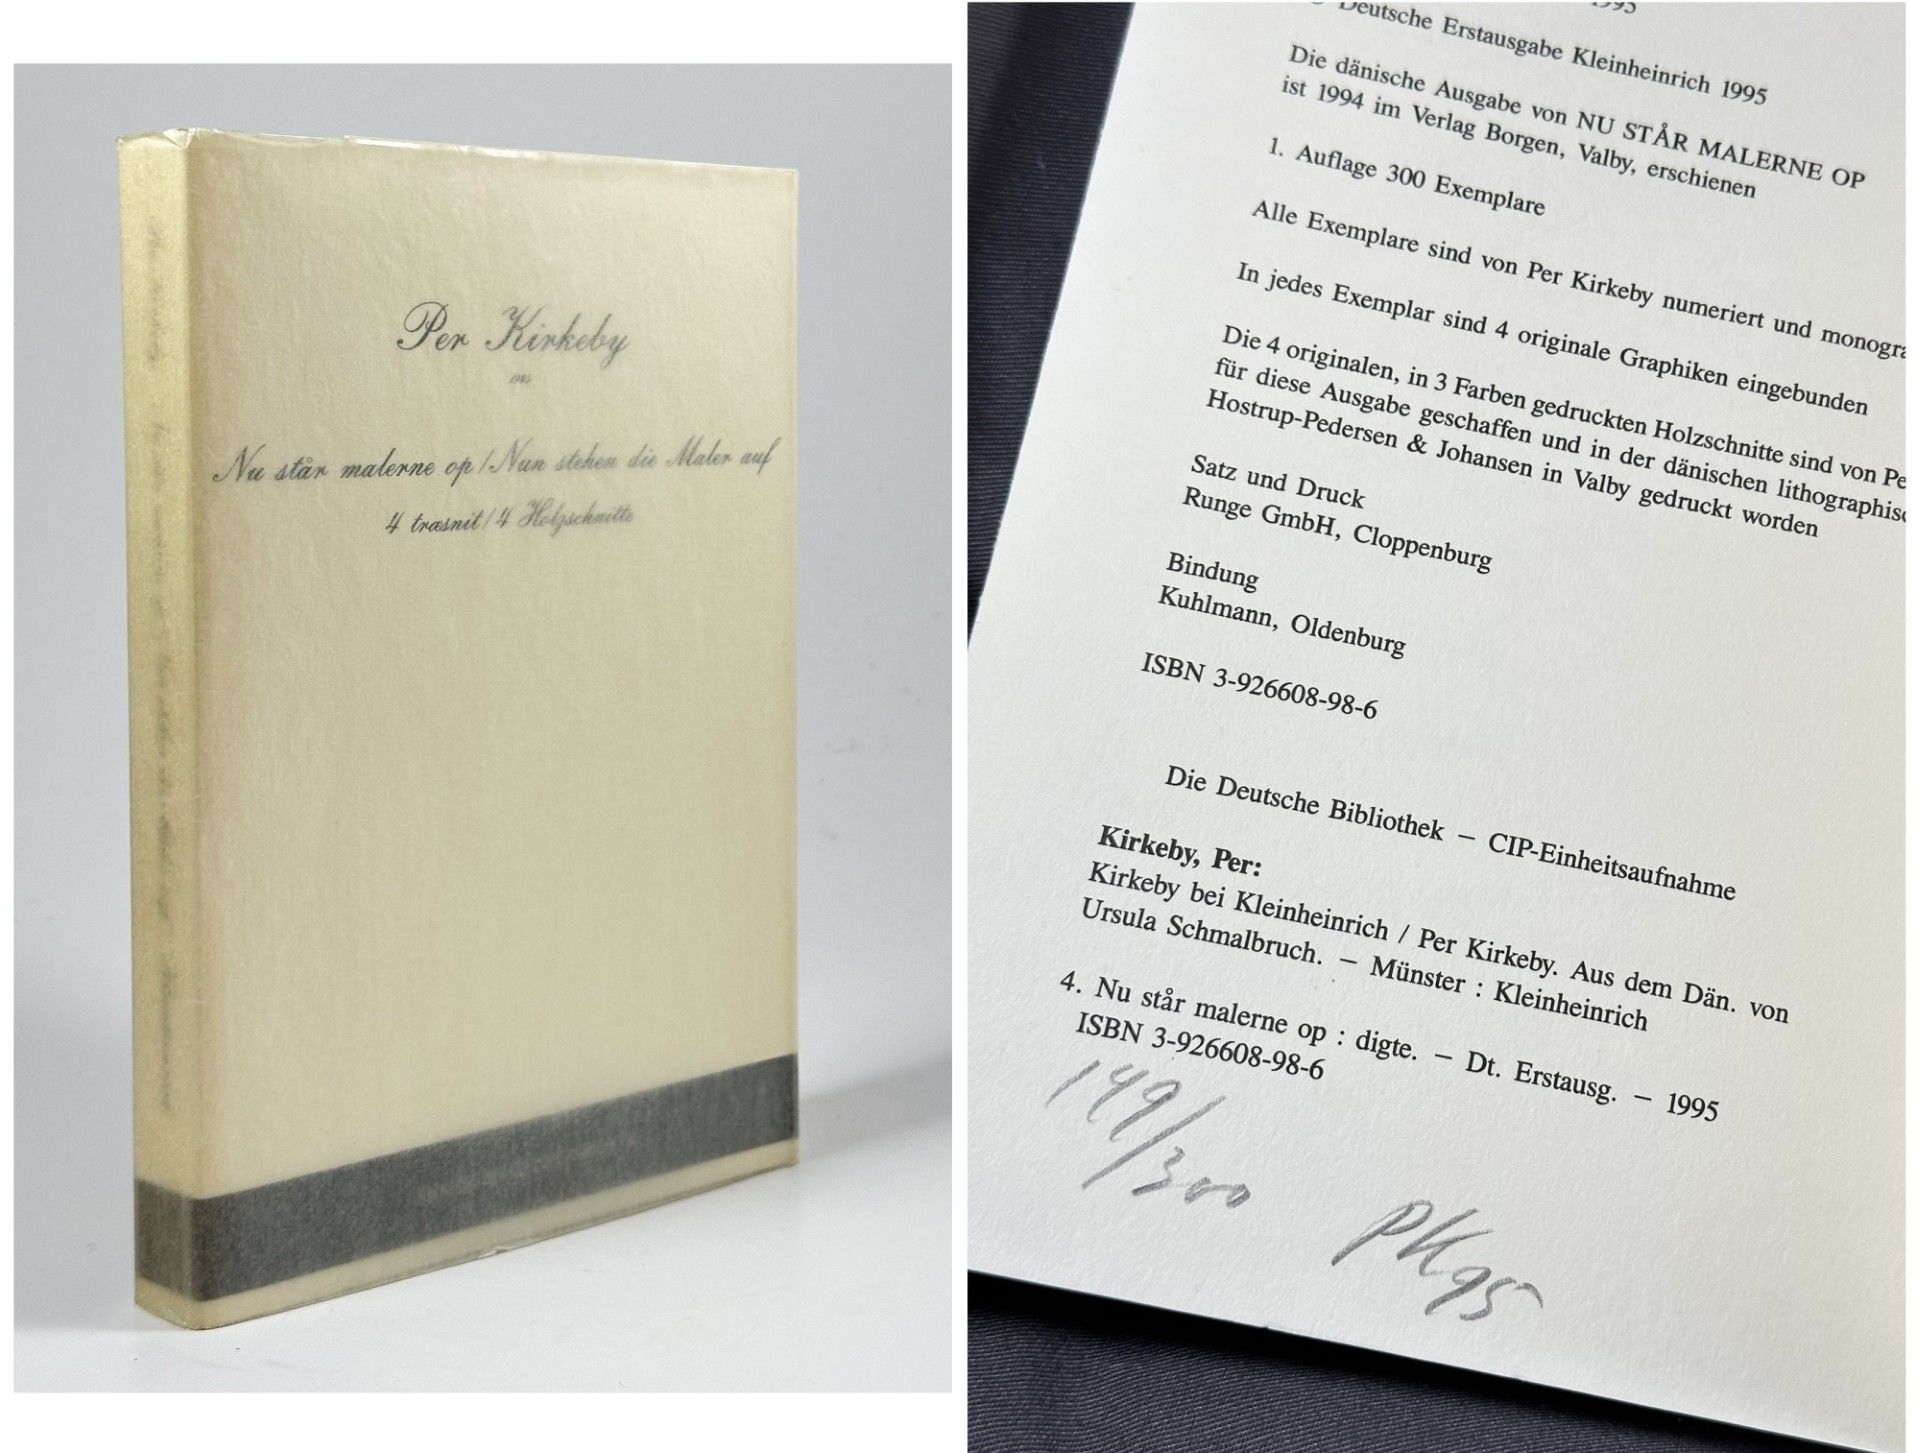 Per Kirkeby
1995
Nu står malerne op / Nun stehen die Maler auf
4 træsnit / 4 Holzschnitte
Deutsche Erstausgabe Kleinheinrich 1995
Die dänische Ausgabe von NU STÅR MALERNE OP
ist 1994 im Verlag Borgen, Valby, erschienen
1. Auflage 300 Exemplare
Alle Exemplare sind von Per Kirkeby numeriert und monogra
In jedes Exemplar sind 4 originale Graphiken eingebunden
Die 4 originalen, in 3 Farben gedruckten Holzschnitte sind von Pe
für diese Ausgabe geschaffen und in der dänischen lithographisc
Hostrup-Pedersen & Johansen in Valby gedruckt worden
Satz und Druck
Runge GmbH, Cloppenburg
Bindung
Kuhlmann, Oldenburg
ISBN 3-926608-98-6
Die Deutsche Bibliothek – CIP-Einheitsaufnahme
Kirkeby, Per:
Kirkeby bei Kleinheinrich / Per Kirkeby. Aus dem Dän. von
Ursula Schmalbruch. – Münster : Kleinheinrich
4. Nu står malerne op : digte. – Dt. Erstausg. – 1995
ISBN 3-926608-98-6
149/300
PK 95